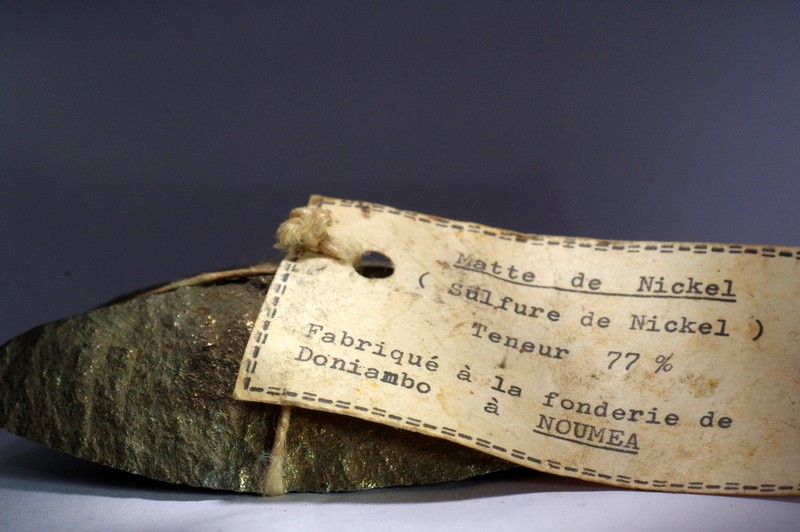 Matte de Nickel
( Sulfure de Nickel )
Teneur 77 %
Fabriqué à la fonderie de
Doniambo à NOUMEA